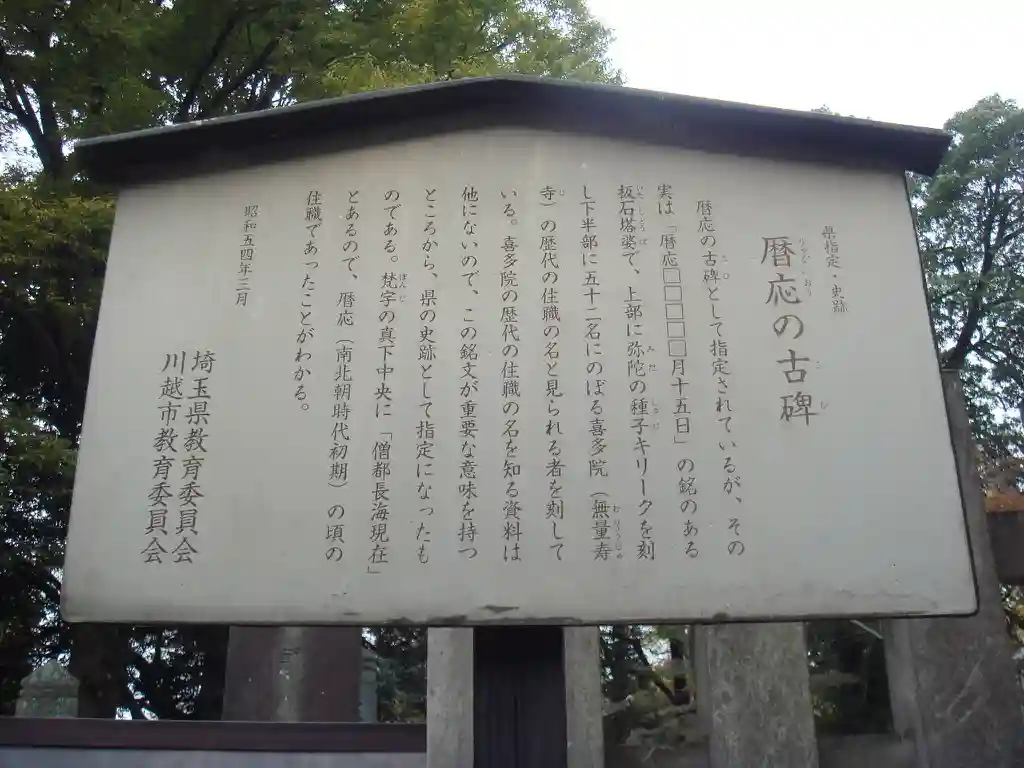 県指定・史跡
暦応の古碑
暦応の古碑として指定されているが、その
実は「暦応□□□□月十五日」の銘のある
板石塔婆で、上部に弥陀の種子キリークを刻
し下半部に五十二名にのぼる喜多院（無量寿
寺）の歴代の住職の名と見られる者を刻して
いる。喜多院の歴代の住職の名を知る資料は
他にないので、この銘文が重要な意味を持つ
ところから、県の史跡として指定になったも
のである。梵字の真下中央に「僧都長海現在」
とあるので、暦応（南北朝時代初期）の頃の
住職であったことがわかる。
昭和五四年三月
埼玉県教育委員会
川越市教育委員会